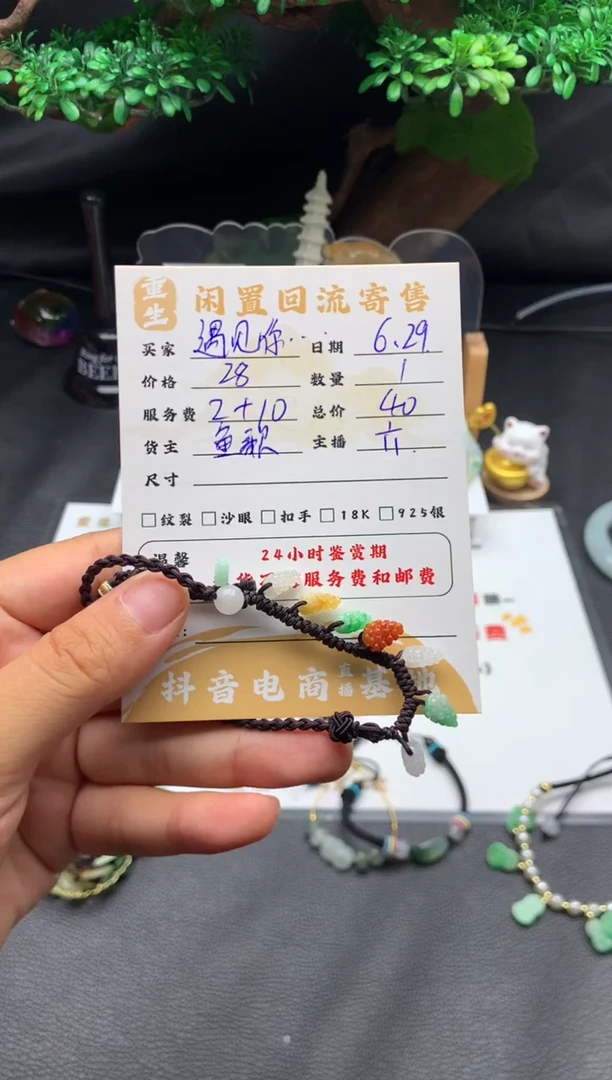 重生 闲置回流寄售
买家 遇见你... 日期 6.29
价格 28 数量 1
服务费 2+10 总价 40
货主 鱼歌 主播 六
尺寸
纹裂 沙眼 扣手 18K 925银
温馨 24小时鉴赏期
服务费和邮费
抖音电商直播基地
BEER